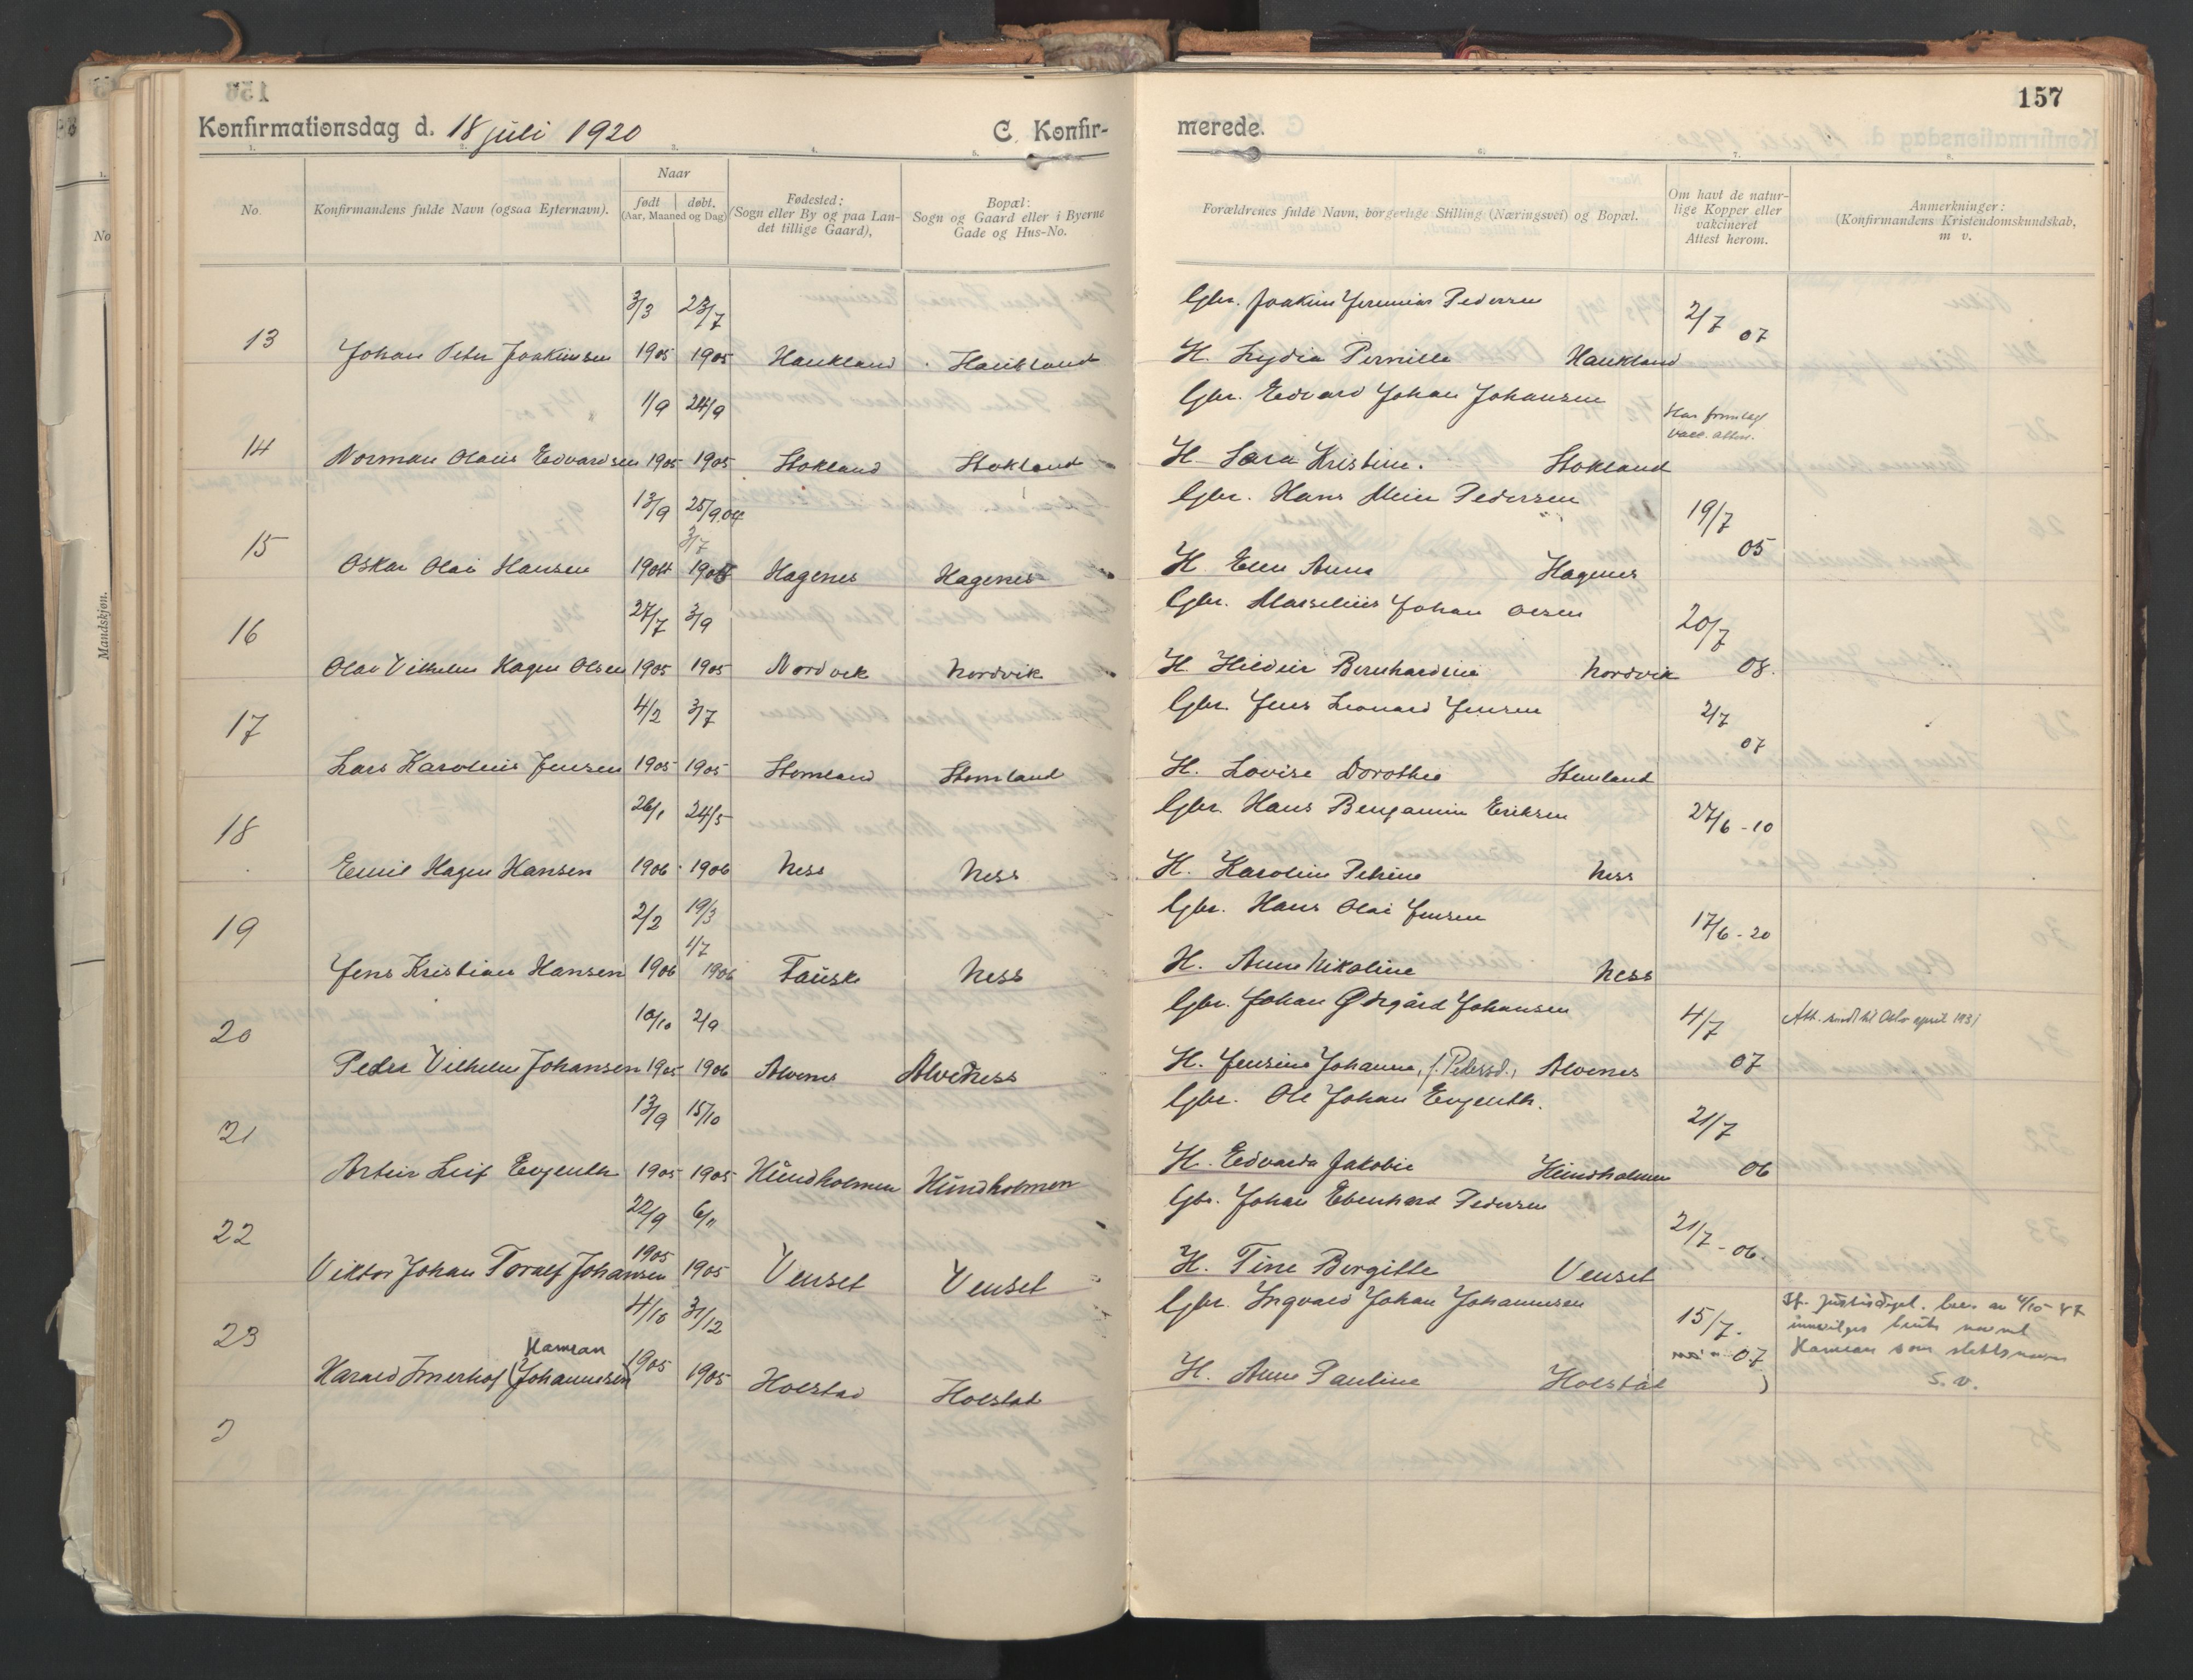 157
Konfirmationsdag d. 18 juli 1920 C. Konfir-merede.
1. 2. 3. 4. 5. 6. 7. 8.
No.
Konfirmandens fulde Navn (ogsaa Efternavn).
Naar
født døbt.
(Aar, Maaned og Dag)
Fødested:
(Sogn eller By og paa Lan-
det tillige Gaard),
Bopæl:
Sogn og Gaard eller i Byerne
Gade og Hus-No.
Forældrenes fulde Navn, borgerlige Stilling (Næringsvei) og Bopæl.
Om havt de natur-
lige Kopper eller
vakcineret
Attest herom.
Anmerkninger:
(Konfirmandens Kristendomskundskab,
m v.
No
Mandskjøn.
3/3 23/7 Gbr. Joakim Jeremias Pedersen 2/7 07
13 Johan Peter Joakimsen 1905 1905 Haukland Haukland H. Lydia Pernille Haukland
1/9 24/9 Gbr. Edvard Johan Johansen Har fremlagt vacc. attest.
14 Norman Olaus Edvardsen 1905 1905 Stokland Stokland H. Sara Kristine. Stokland
13/9 25/9 04 3/7 Gbr. Hans Meier Pedersen 19/7 05
15 Oskar Olai Hansen 1904 1905 Hagenes Hagenes H. Elen Anna Hagenes
27/7 3/9 Gbr. Marselius Johan Olsen 20/7
16 Olav Vilhelm Hagen Olsen 1905 1905 Nordvik Nordvik H. Hildur Bernhardine Nordvik 08.
4/2 3/7 Gbr. Jens Leonard Jensen 2/7 07
17 Lars Karolius Jensen 1905 1905 Stemland Stemland H. Lovise Dorothea Stemland
26/1 24/5 Gbr. Hans Benjamin Eriksen 27/6 - 10
18 Emil Hagen Hansen 1906 1906 Ness Ness H. Karoline Petrine Ness
2/2 19/3 1/7 Gbr. Hans Olai Jensen 17/6 - 20
19 Jens Kristian Hansen 1906 1906 Fauske Ness H. Anne Nikoline Ness
10/10 2/9 Gbr. Johan Ødegård Johansen 4/7 Att. sendt til Oslo april 1931
20 Peder Vilhelm Johansen 1905 1906 Alvenes Alveness H. Jensine Johanna, f. Pedersd., Alvenes 07
13/9 15/10 Gbr. Ole Johan Eugenth. 21/7
21 Artur Leif Eugenth 1905 1905 Hundholmen Hundholmen H. Edvarda Jakobie Hundholmen 06
22/9 6/11 Gbr. Johan Ebenhard Pedersen 21/7 - 06.
22 Viktor Johan Toralf Johansen 1905 1905 Venset Venset H. Tine Bergitte Venset
4/10 31/12 Gbr. Ingvard Johan Johannesen 15/7. 07
23 Harald Imerhof (Johannesen) Hamran 1905 1905 Holstad Holstad H. Anne Pauline Holstad
If. Justisdept. brev av 4/10-47
innvilges bruk navnet
Hamran som slektsnavn
S. V.